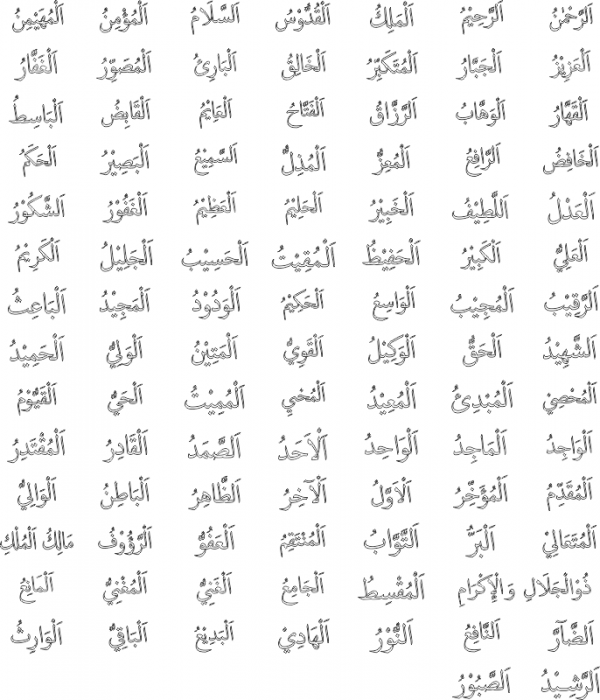 اَلرَّحْمٰنُ اَلرَّحِيْمُ اَلْمَلِكُ اَلْقُدُّوْسُ اَلسَّلَامُ اَلْمُؤْمِنُ اَلْمُهَيْمِنُ
اَلْعَزِيْزُ اَلْجَبَّارُ اَلْمُتَكَبِّرُ اَلْخَالِقُ اَلْبَارِئُ اَلْمُصَوِّرُ اَلْغَفَّارُ
اَلْقَهَّارُ اَلْوَهَّابُ اَلرَّزَّاقُ اَلْفَتَّاحُ اَلْقَابِضُ اَلْبَاسِطُ
اَلْخَافِضُ اَلرَّافِعُ اَلْمُعِزُّ اَلْمُذِلُّ اَلسَّمِيْعُ اَلْبَصِيْرُ اَلْحَكَمُ
اَلْعَدْلُ اَللَّطِيْفُ اَلْخَبِيْرُ اَلْحَلِيْمُ اَلْعَظِيْمُ اَلْغَفُوْرُ اَلشَّكُوْرُ
اَلْعَلِيُّ اَلْكَبِيْرُ اَلْحَفِيْظُ اَلْمُقِيْتُ اَلْحَسِيْبُ اَلْجَلِيْلُ اَلْكَرِيْمُ
اَلرَّقِيْبُ اَلْمُجِيْبُ اَلْوَاسِعُ اَلْحَكِيْمُ اَلْوَدُوْدُ اَلْمَجِيْدُ اَلْبَاعِثُ
اَلشَّهِيْدُ اَلْحَقُّ اَلْوَكِيْلُ اَلْقَوِيُّ اَلْمَتِيْنُ اَلْوَلِيُّ اَلْحَمِيْدُ
اَلْمُحْصِيْ اَلْمُبْدِئُ اَلْمُعِيْدُ اَلْمُحْيِي اَلْمُمِيْتُ اَلْحَيُّ اَلْقَيُّوْمُ
اَلْوَاجِدُ اَلْمَاجِدُ اَلْوَاحِدُ اَلْاَحَدُ اَلصَّمَدُ اَلْقَادِرُ اَلْمُقْتَدِرُ
اَلْمُقَدِّمُ اَلْمُؤَخِّرُ اَلْاَوَّلُ اَلْآخِرُ اَلظَّاهِرُ اَلْبَاطِنُ اَلْوَالِيُّ
اَلْمُتَعَالِيْ اَلْبَرُّ اَلتَّوَّابُ اَلْمُنْتَقِمُ اَلْعَفُوُّ اَلرَّؤُوْفُ مَالِكُ الْمُلْكِ
ذُوْالْجَلَالِ وَالْاِكْرَامِ اَلْمُقْسِطُ اَلْجَامِعُ اَلْغَنِيُّ اَلْمُغْنِيُّ اَلْمَانِعُ
اَلضَّآرُّ اَلنَّافِعُ اَلنُّوْرُ اَلْهَادِيْ اَلْبَدِيْعُ اَلْبَاقِيُّ اَلْوَارِثُ
اَلرَّشِيْدُ اَلصَّبُوْرُ